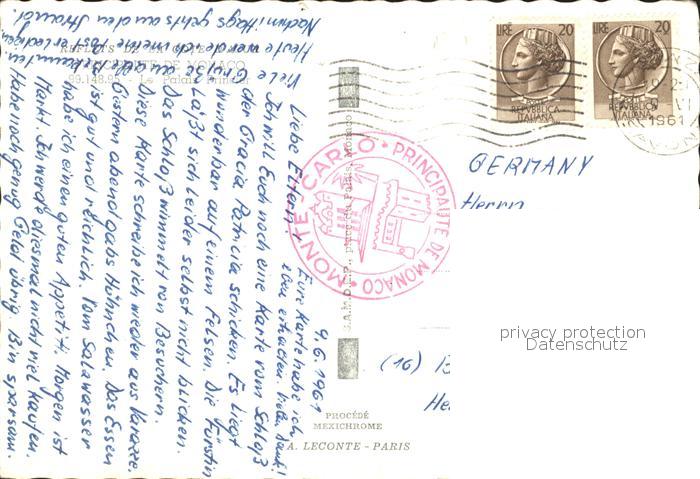 9.6.1961
Liebe Eltern!
Eure Karte habe ich
erhalten. Vielen Dank!
Ich will Euch noch eine Karte vom Schloß
der Gracia Patricia schicken. Es liegt
wunderbar auf einem Felsen. Die Fürstin
läßt sich leider selbst nicht blicken.
Das Schloß wimmelt von Besuchern.
Diese Karte schreibe ich wieder aus Varazze.
Gestern abend gabs Hühnchen. Das Essen
ist gut und reichlich. Vom Salawasser
habe ich einen guten Appetit. Morgen ist
Markt. Ich werde diesmal nicht viel kaufen.
Habe noch genug Geld übrig. Bin sparsam.
Heute werde ich meine Post erledigen.
Nachmittags gehts an den Strand
Viele Grüße
REFLETS DE LA CÔTE D'AZUR
PRINCIPAUTÉ DE MONACO
99.148.95 - Le Palais Princier
S.A.M.D.E.P., place du Palais, Monaco
MONTE-CARLO • PRINCIPAUTE DE MONACO •
PROCÉDÉ
MEXICHROME
A. LECONTE - PARIS
LIRE 20
REPVBBLICA
ITALIANA
LIRE 20
REPVBBLICA
ITALIANA
1961
GERMANY
Herrn
(16) B
He
privacy protection
Datenschutz